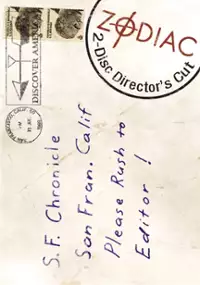 ZODIAC
2-Disc Director's Cut
DISCOVER AMERICA
S.F. Chronicle
San Fran. Calif
Please Rush to
Editor !